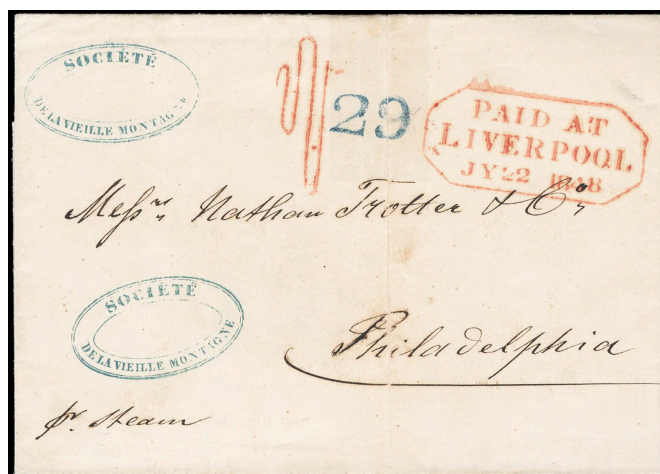 SOCIÉTÉ
DE LA VIEILLE MONTAGNE
29
PAID AT
LIVERPOOL
JY 22 1848
Messrs. Nathan Trotter & Co.
SOCIÉTÉ
DE LA VIEILLE MONTAGNE
Philadelphia
pr. steam